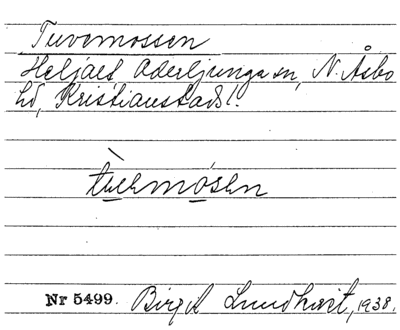 Tuvemossen
Heljalt Oderljunga sn, N. Åsbo
hd, Kristianstads l.
Nr 5499. Birgit Lundkvist, 1938.